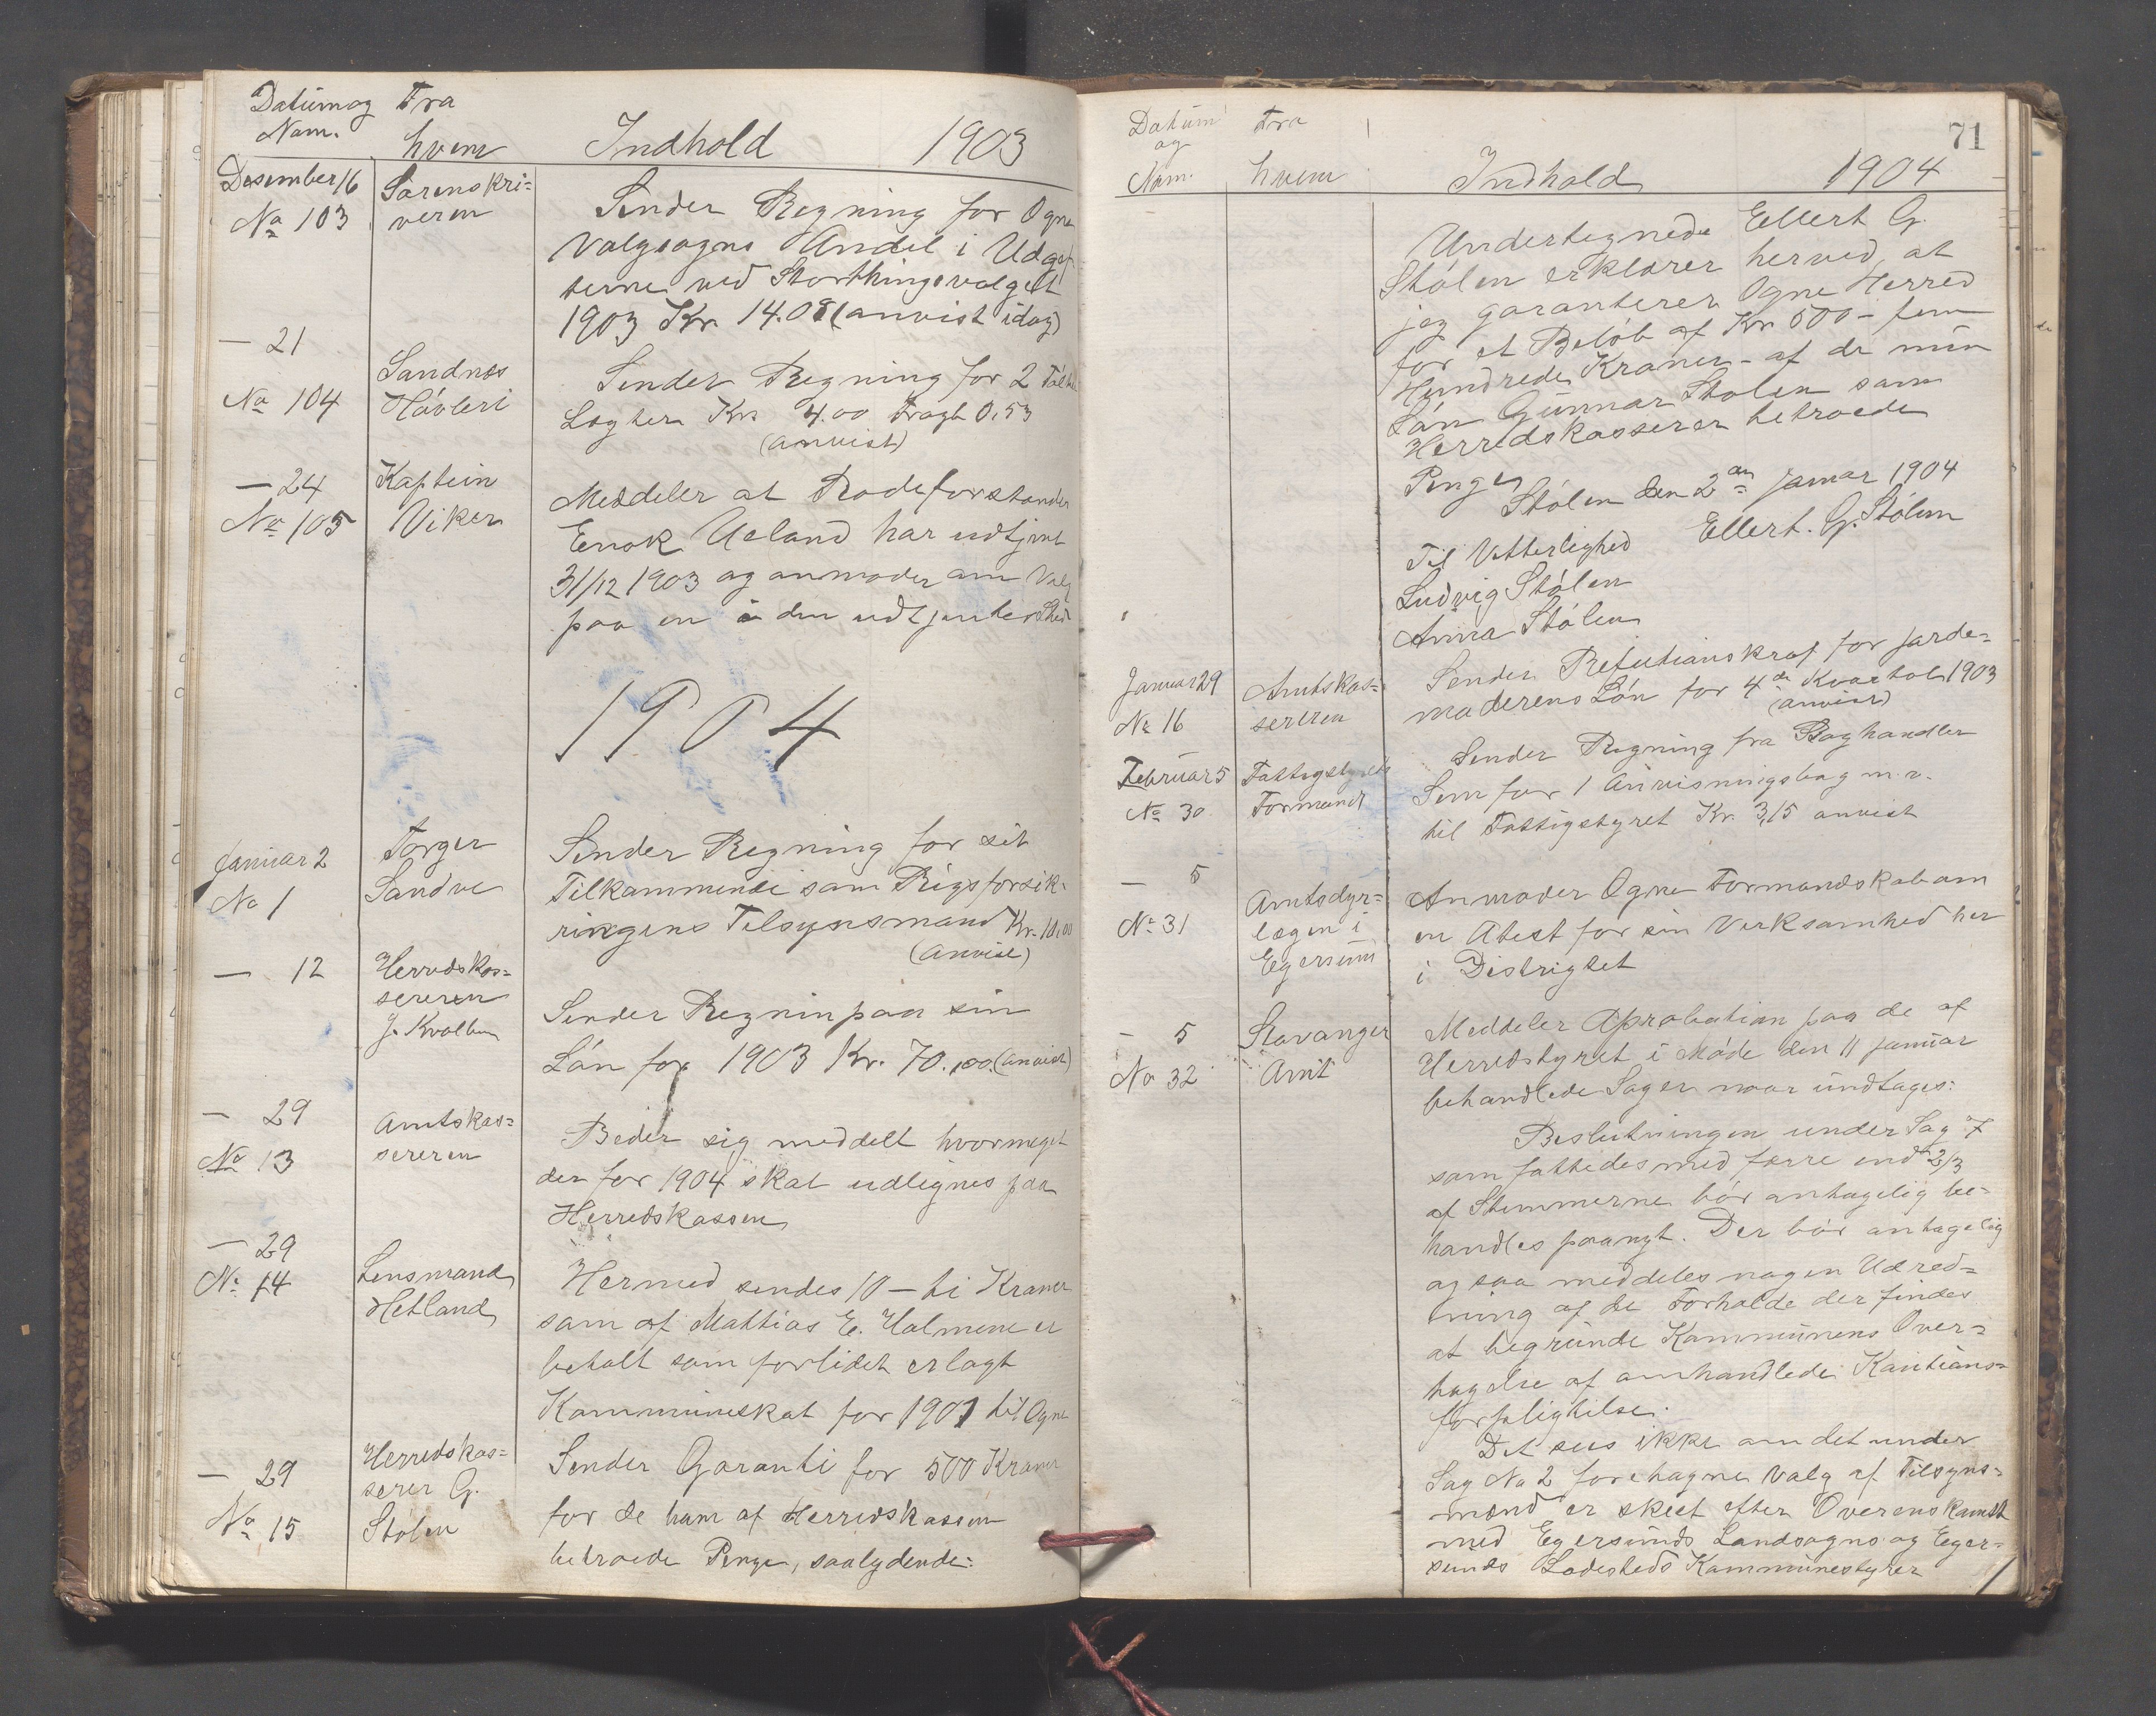 Datum og Fra
Num. hvem Indhold 1903
Desember 16 Sorenskri=
No 103 veren
Sender Regning for Ogne
Valgsogns Andel i Udgif
terne ved Storthingsvalget
1903 Kr. 14.08 (anvist idag)
— 21 Sandnes
No 104 Høvleri
Sender Regning for 2
Legter Kr. 4.00 Fragt 0.53
(anvist)
— 24 Kaptein
No 105 Viker
Meddeler at Rodeforstander
Enok Ueland har udtjent
31/12 1903 og anmoder om Valg
paa en i den udtjentes Sted
1904
Januar 2 Torger
No 1 Sandve
Sender Regning for sit
Tilkommende som Rigsforsik-
ringens Tilsynsmand Kr. 10,00
(Anvist)
— 12 Herredskas=
sereren
J. Kvalbein
Sender Regnin paa sin
Løn for 1903 Kr. 70.00 (anvist)
— 29 Amtskas=
No 13 sereren
Beder sig meddelt hvormeget
der for 1904 skat udlignes paa
Herredskassen
— 29
No 14 Lensmand
Hetland
Hermed sendes 10 — ti Kroner
som af Mathias E. Holmene er
betalt som forlidet erlagt
Kommuneskat for 1901 til Ogne
— 29 Herredskas=
No 15 serer G.
Stølen
Sender Garanti for 500 Kroner
for de ham af Herredskassen
betroede Penge, saalydende:
71
Datum Fra
og
Num. hvem Indhold 1904
Undertegnede Ellert G.
Stølen erklærer herved, at
jeg garanterer Ogne Herred
for et Beløb af Kr 500 – fem
Hundrede Kroner – af de min
Søn Gunnar Stølen som
Herredskasserer betroede
Penge
Stølen den 2den januar 1904
Ellert. G. Stølen
Til Vitterlighed
Ludvig Stølen
Anna Stølen
Januar 29 Amtskas=
No 16 sereren
Sender Refutionskraf for jorde=
moderens Løn for 4de Kvartal 1903
(anvist)
Februar 5 Fattigstyrets
No 30 Formand
Sender Regning fra Boghandler
Sem for 1 Anvisningsbog m. v.
til Fattigstyret Kr. 3,15 anvist
— 5 Amtsdyr=
No 31 lægen i
Egersund
Anmoder Ogne Formandskab om
en Atest for sin Verksamhed her
i Distrigtet
— 5 Stavanger
No 32 Amt
Meddeler Aprobation paa de af
Herredstyret i Møde den 11 januar
behandlede Sager naar undtages:
Beslutningen under Sag 7
som fattedes med færre end 2/3
af Stemmerne bør antagelig be=
handles paanyt. Der bør antagelig
og saa meddeles nogen Udred=
ning af de Forholde der findes
at begrunde Kommunens Over=
tagelse af omhandlede Kautions=
forpligtelse.
Det sees ikke om det under
Sag No 2 foretagne Valg af Tilsyns=
mænd er skeet efter Overenskomst
med Egersunds Landsogns og Eger=
sunds Ladesteds Kommunestyrer